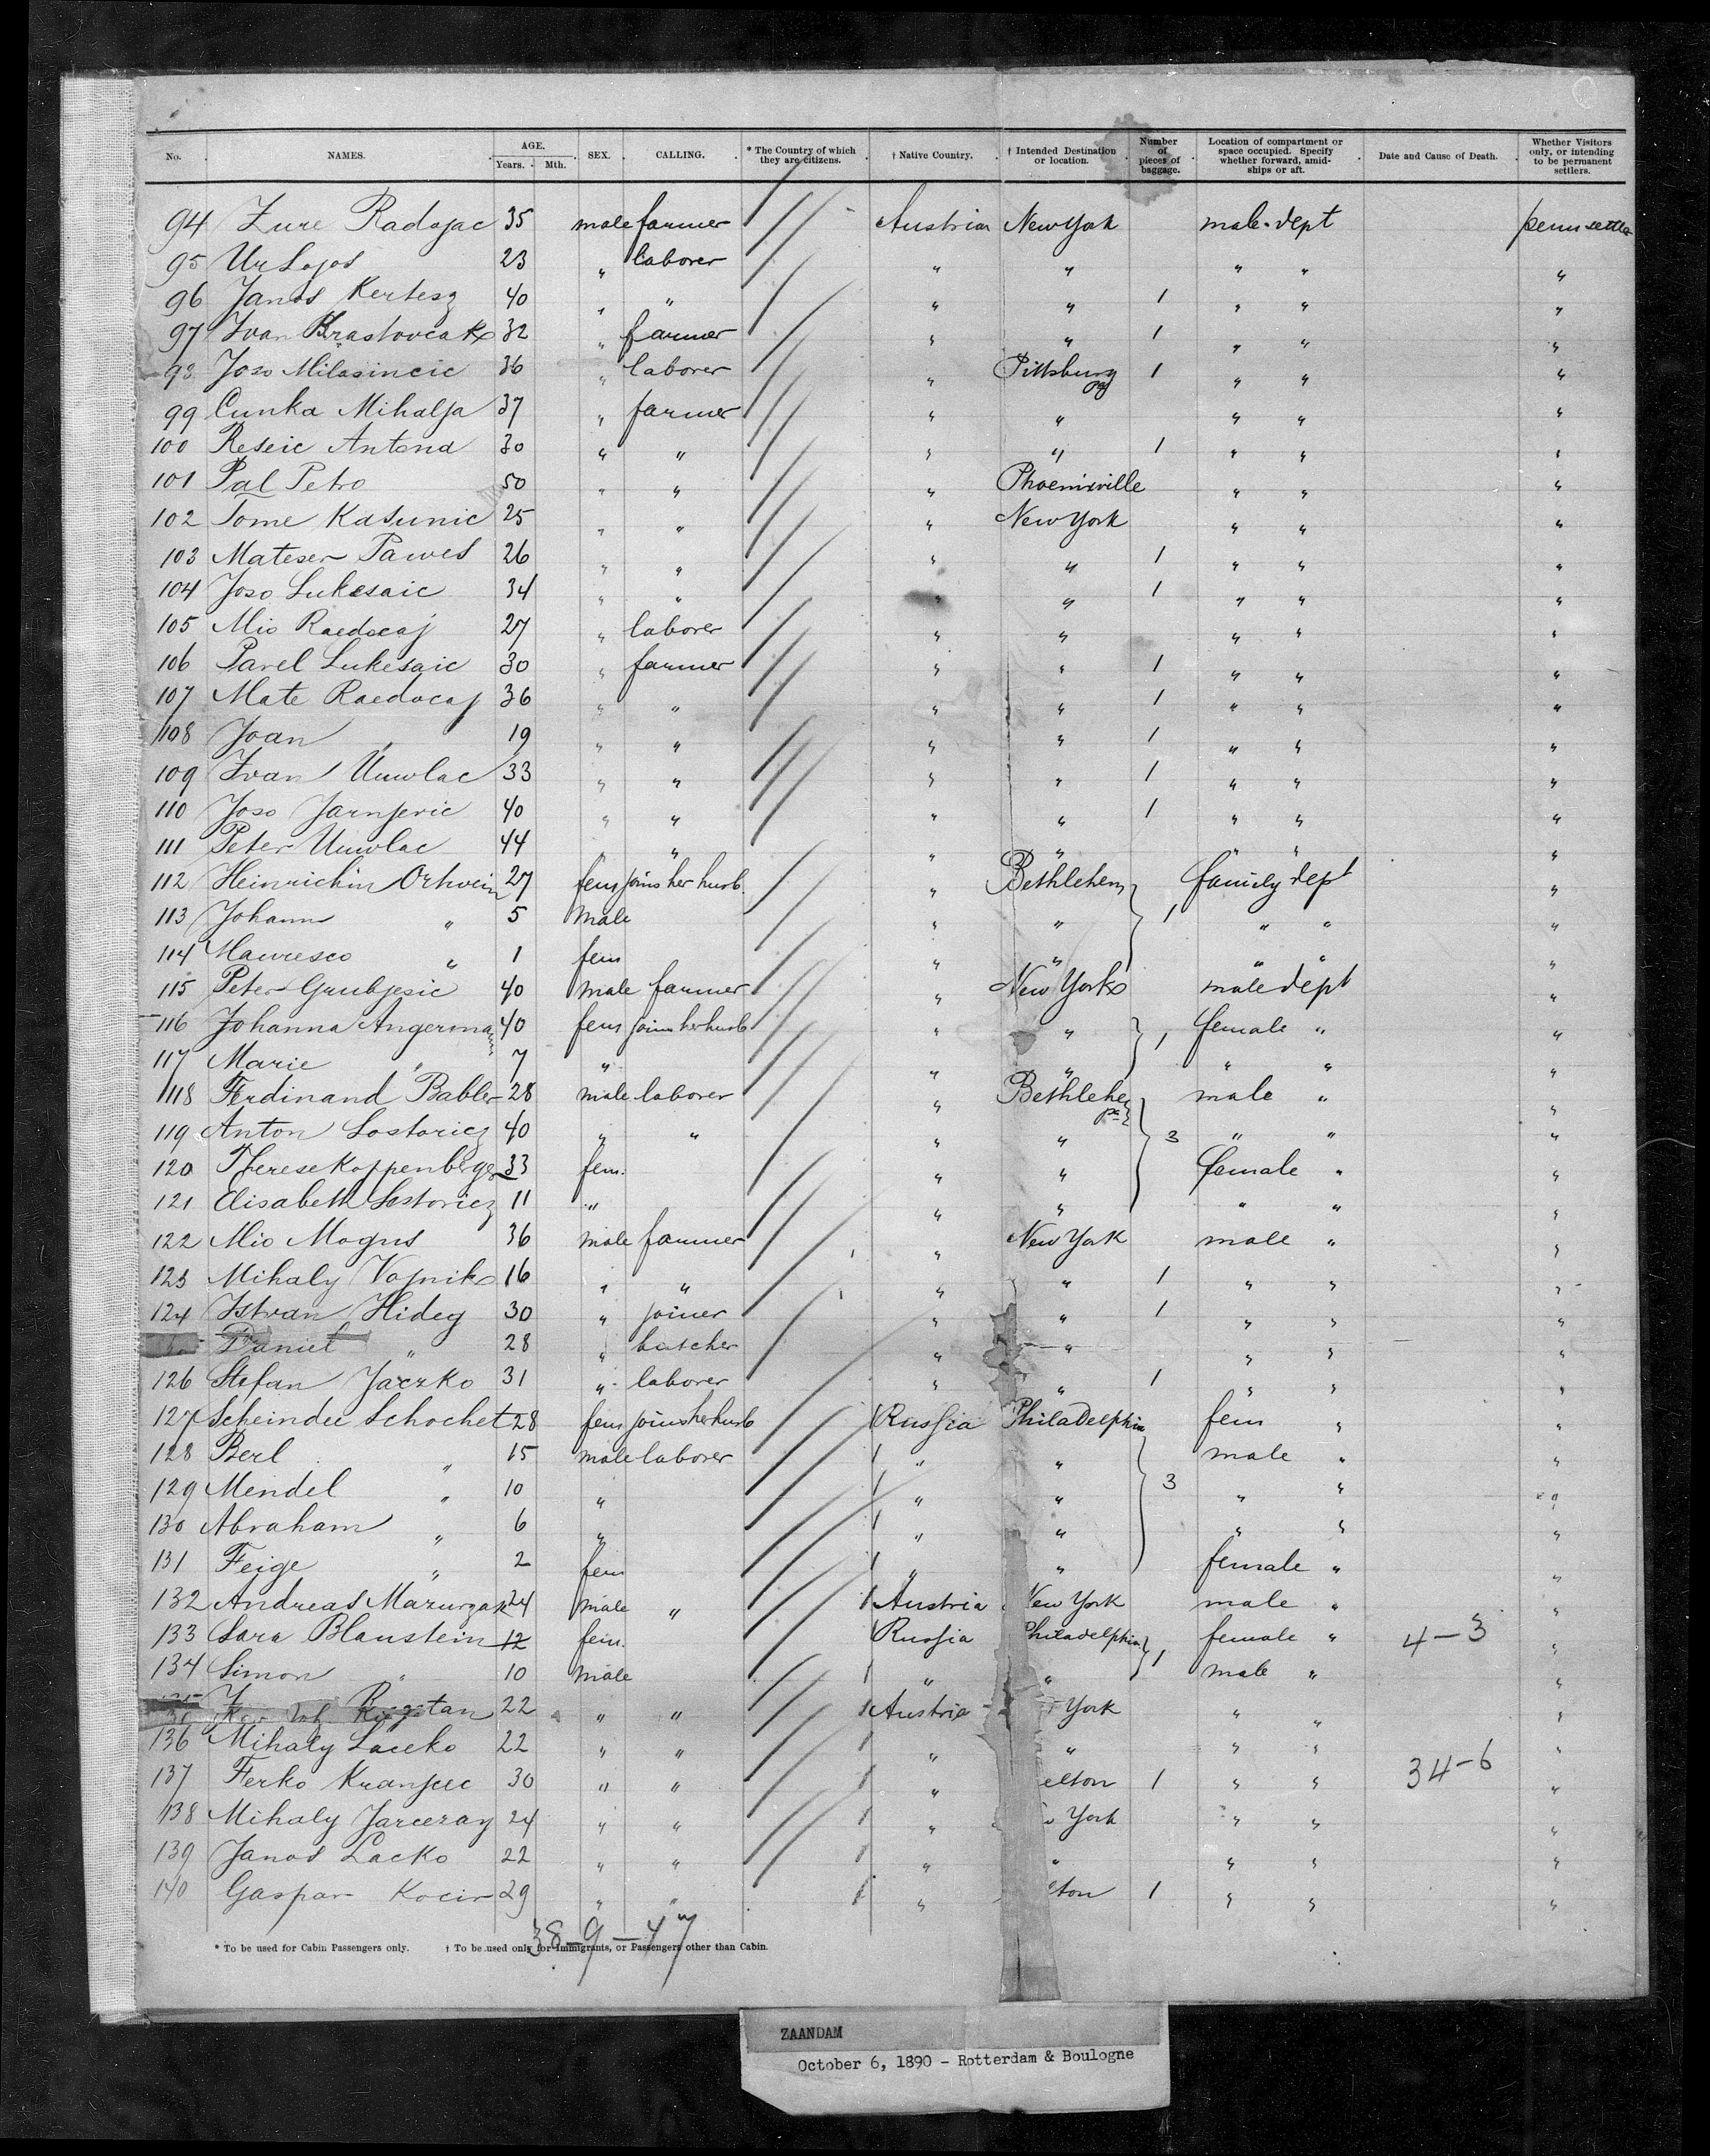 No. NAMES. AGE. Years. Mth. SEX. CALLING. * The Country of which they are citizens. † Native Country. † Intended Destination or location. Number of pieces of baggage. Location of compartment or space occupied. Specify whether forward, amidships or aft. Date and Cause of Death. Whether Visitors only, or intending to be permanent settlers.
94 Zure Radojac 35 male farmer Austria New York male dept perm settler
95 Ur Lajos 23 " laborer " " " " "
96 Janos Kertesz 40 " " " " 1 " " "
97 Ivan 32 " farmer " " 1 " " "
98 Joso Milasincic 36 " laborer " Pittsburg Pa 1 " " "
99 Cunka Mihalja 37 " farmer " " " " "
100 Reseic Antona 30 " " " " 1 " " "
101 Pal Petro 50 " " " Phoenixville " " "
102 Tome Kasunic 25 " " " New York " " "
103 Mateser Pawes 26 " " " " 1 " " "
104 Joso Lukesaic 34 " " " " 1 " " "
105 Mio Raedocaj 27 " laborer " " " " "
106 Pavel Lukesaic 30 " farmer " " 1 " " "
107 Mate Raedocaj 36 " " " " 1 " " "
108 Joan " 19 " " " " 1 " " "
109 Ivan Uuwlac 33 " " " " 1 " " "
110 Joso Jarnjevic 40 " " " " 1 " " "
111 Peter Uuwlac 44 " " " " " " "
112 Heinrichin Ortwein 27 fem joins her husb. " Bethlehem family dept "
113 Johann " 5 male " " 1 " " "
114 Mauresco " 1 fem " " " " "
115 Peter Grubjesic 40 male farmer " New York male dept "
116 Johanna Angermann 40 fem joins her husb " " 1 female " "
117 Marie " 7 " " " " " "
118 Ferdinand Babler 28 male laborer " Bethlehe Pa male " "
119 Anton Sostaricz 40 " " " " 3 " " "
120 Therese Koppenberger 33 fem. " " female " "
121 Elisabeth Sostaricz 11 " " " " " "
122 Mio Mogus 36 male farmer " New York male " "
123 Mihaly Vojnik 16 " " " " 1 " " "
124 Istvan Hideg 30 " joiner " " 1 " " "
Daniel " 28 " butcher " " " " "
126 Stefan Jaczko 31 " laborer " " 1 " " "
127 Scheindee Schochet 28 fem joins her husb Russia Philadelphia fem " "
128 Berl " 15 male laborer " " male " "
129 Mendel " 10 " " " 3 " " "
130 Abraham " 6 " " " " " "
131 Feige " 2 fem " " female " "
132 Andreas Mazurzak 24 male " Austria New York male " "
133 Sara Blaustein 12 fem. Russia Philadelphia 1 female " 4-3 "
134 Simon " 10 male " " male " "
135 22 " " Austria York " " "
136 Mihaly Laceko 22 " " " " " " "
137 Ferko Kranjcec 30 " " " elton 1 " " 34-6 "
138 Mihaly Jarceray 24 " " " York " " "
139 Janos Lacko 22 " " " " " " "
140 Gaspar Kocir 29 " " " eton 1 " " "
38-9-47
* To be used for Cabin Passengers only. † To be used only for Immigrants, or Passengers other than Cabin.
ZAANDAM
October 6, 1890 - Rotterdam & Boulogne